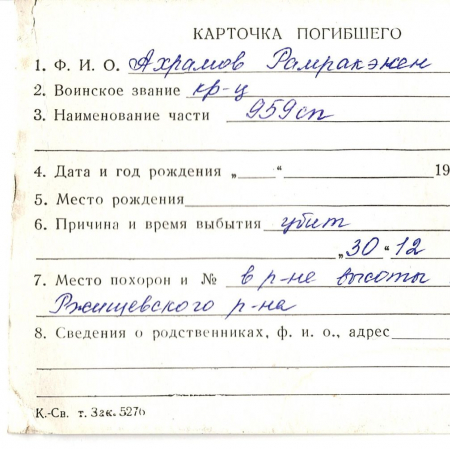 КАРТОЧКА ПОГИБШЕГО
1. Ф. И. О. Ахрамов Рамракэнен
2. Воинское звание кр-ц
3. Наименование части 959сп
4. Дата и год рождения „ “ 19
5. Место рождения
6. Причина и время выбытия убит
„30“ 12
7. Место похорон и № в р-не высоты
Ржищевского р-на
8. Сведения о родственниках, ф. и. о., адрес
К.-Св. т. Зак. 5276